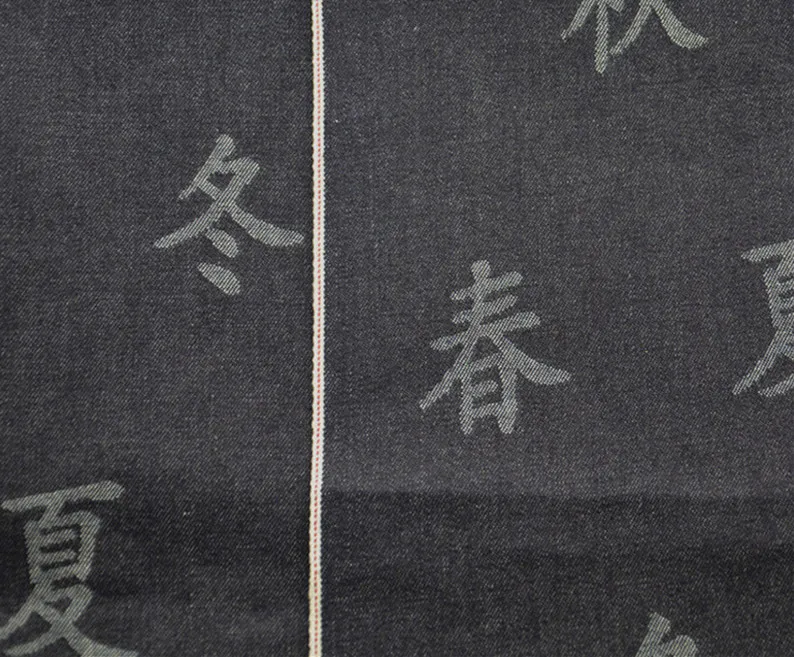 秋
冬
春
夏
夏